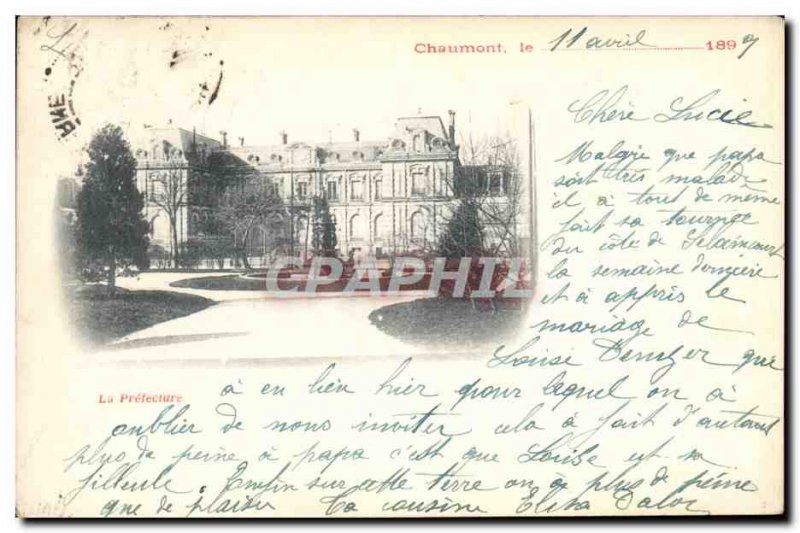 Chaumont, le 11 avril 1899
Chère Lucie
Malgré que papa
soit très malade
il a tout de même
fait sa tournée
du côté de
la semaine dernière
et a appris le
mariage de
Louise que
a eu lieu hier pour lequel on a
oublier de nous inviter cela a fait d'autant
plus de peine à papa c'est que Louise est sa
filleule. Enfin sur cette terre on a plus de peine
que de plaisir Ta cousine Elisa
La Préfecture
CPARAMA
RNE